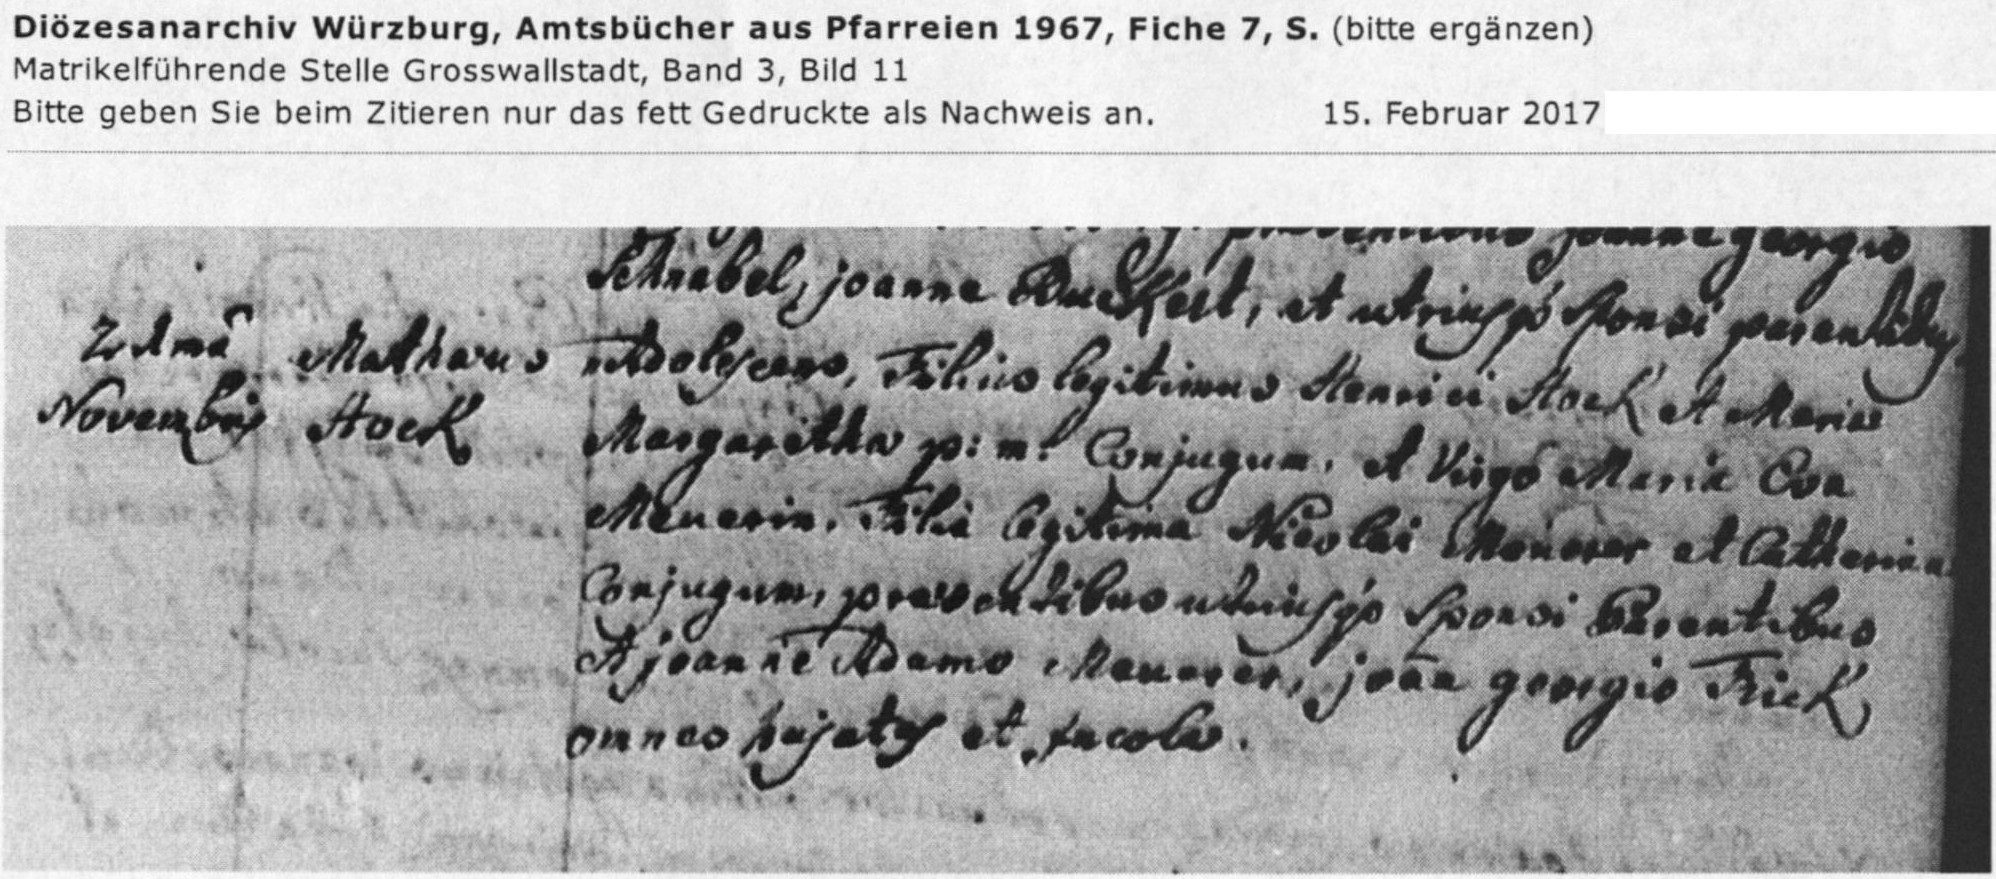 Diözesanarchiv Würzburg, Amtsbücher aus Pfarreien 1967, Fiche 7, S. (bitte ergänzen)
Matrikelführende Stelle Grosswallstadt, Band 3, Bild 11
Bitte geben Sie beim Zitieren nur das fett Gedruckte als Nachweis an. 15. Februar 2017
joanne georgio
Schnabel, joanne et utriusq sponsi parentibus
Mathæus Adolescens, Filius legitimus Henrici Stock et Mariæ
Novembris Stock Margarithæ p: m: Conjugum, et Virgo Maria Eva
Meuerin, Filia legitima Nicolai Meuerer et Catherina
Conjugum, præsentibus utriusq Sponsi Parentibus
et joanne Adamo Meuerer, joan georgio Frick
omnes hujates et incolæ.